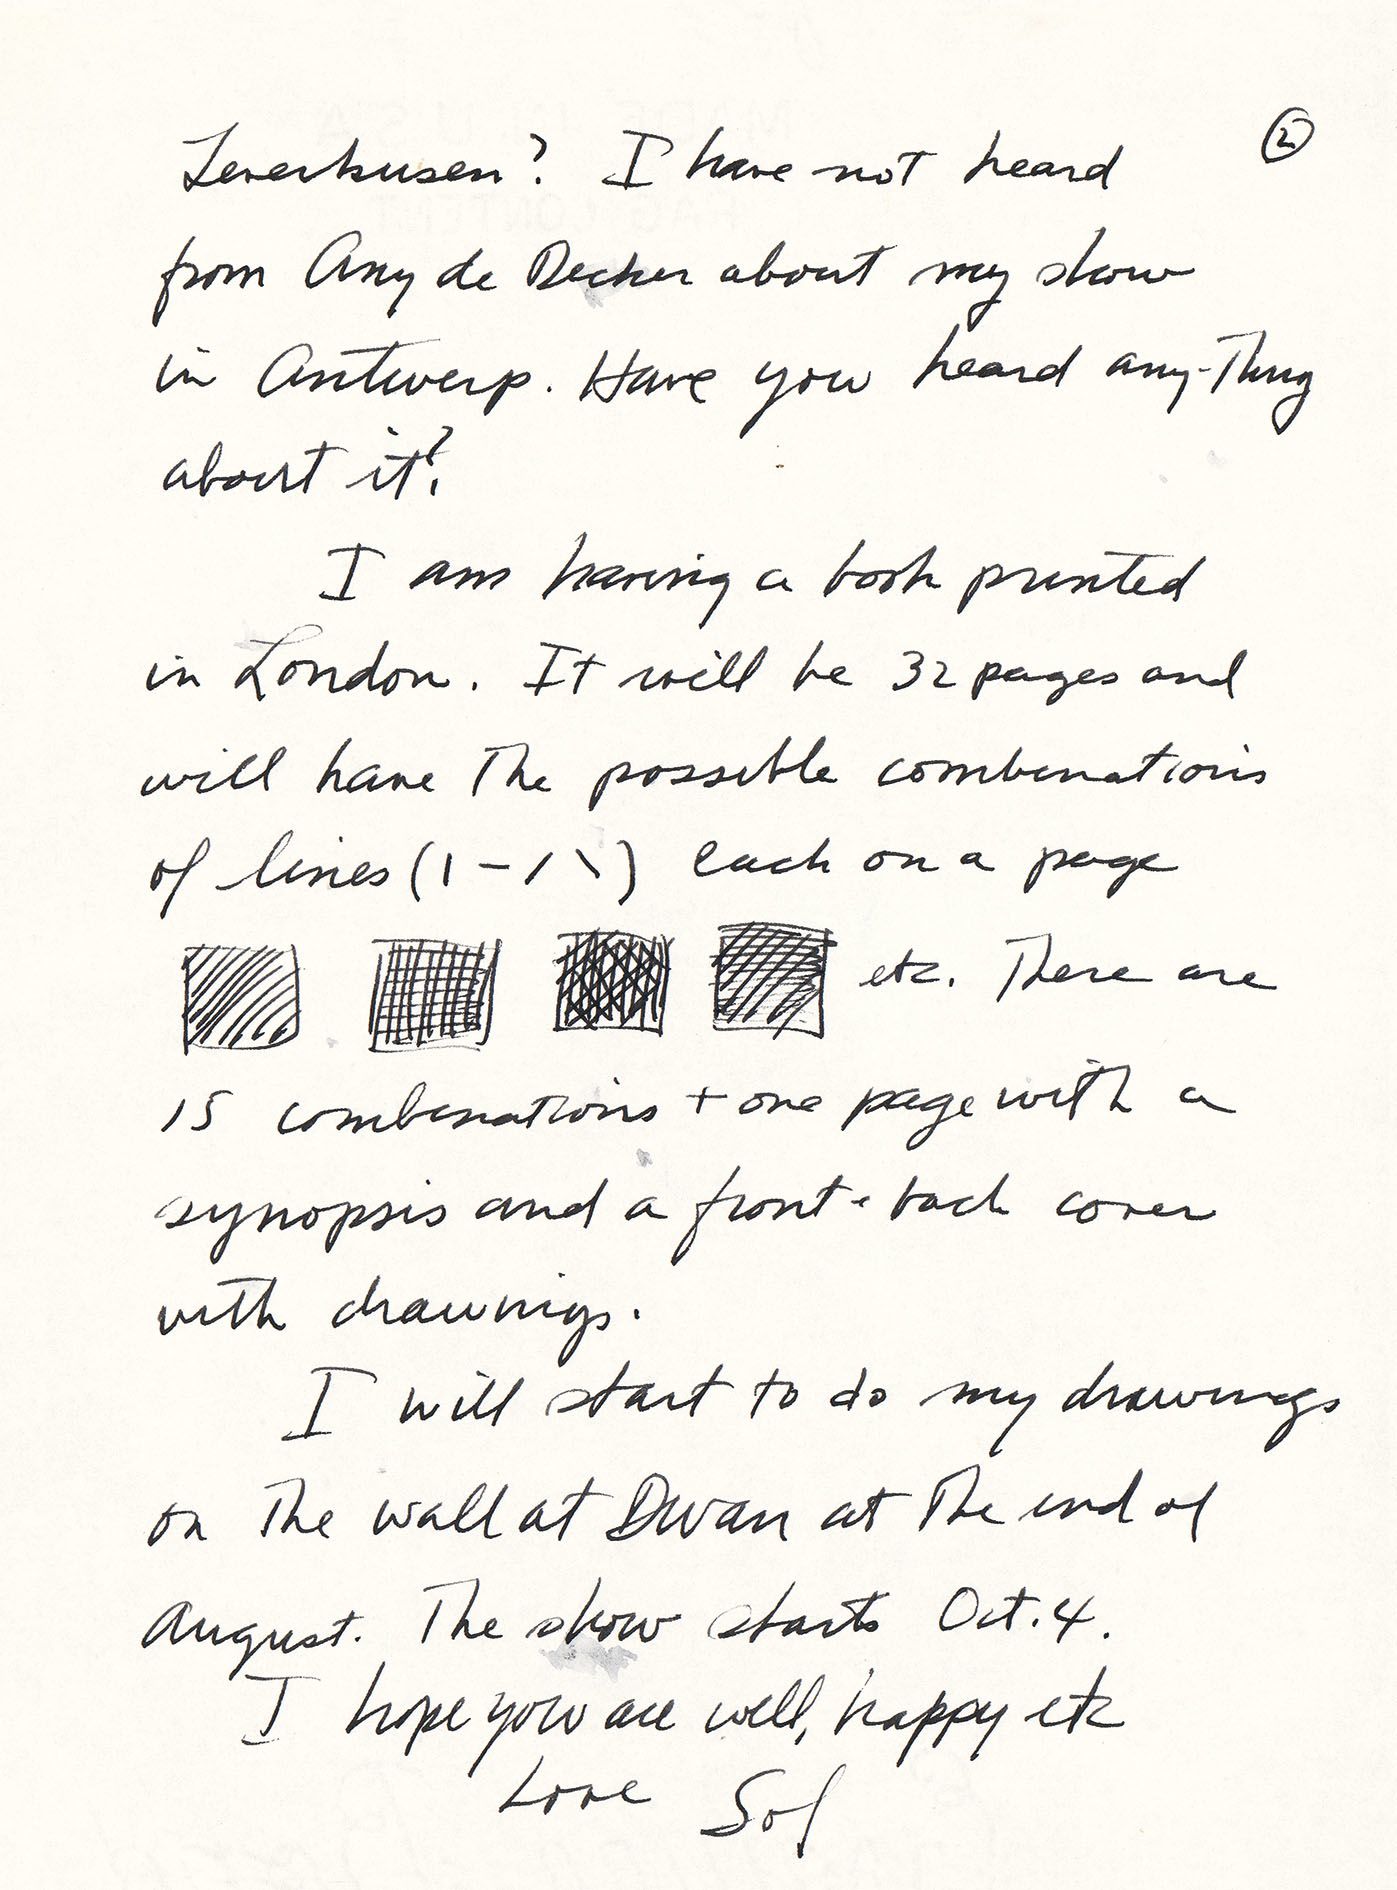 ②
Leverkusen? I have not heard
from Any de Decker about my show
in Antwerp. Have you heard any-thing
about it?
I am having a book printed
in London. It will be 32 pages and
will have the possible combinations
of lines (| — / \) each on a page
etc. There are
15 combinations + one page with a
synopsis and a front + back cover
with drawings.
I will start to do my drawings
on the wall at Dwan at the end of
August. The show starts Oct. 4.
I hope you are well, happy etc
Love Sol